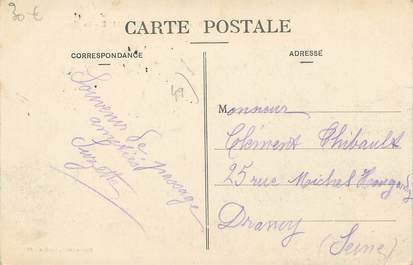 30 €
CARTE POSTALE
CORRESPONDANCE
ADRESSE
49
Souvenir de passage
amitiés
Suzette
Monsieur
Clément Thibault
25 rue Michel
Drancy
(Seine)